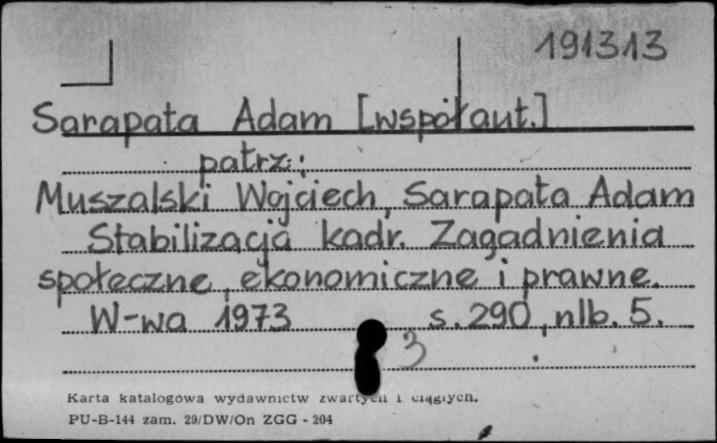 191313
Sarapata Adam [współaut.]
patrz:
Muszalski Wojciech, Sarapata Adam
Stabilizacja kadr. Zagadnienia
społeczne, ekonomiczne i prawne.
W-wa 1973 s. 290, nlb. 5.
3
Karta katalogowa wydawnictw zwartych i ciągłych.
PU-B-144 zam. 29/DW/On ZGG - 204